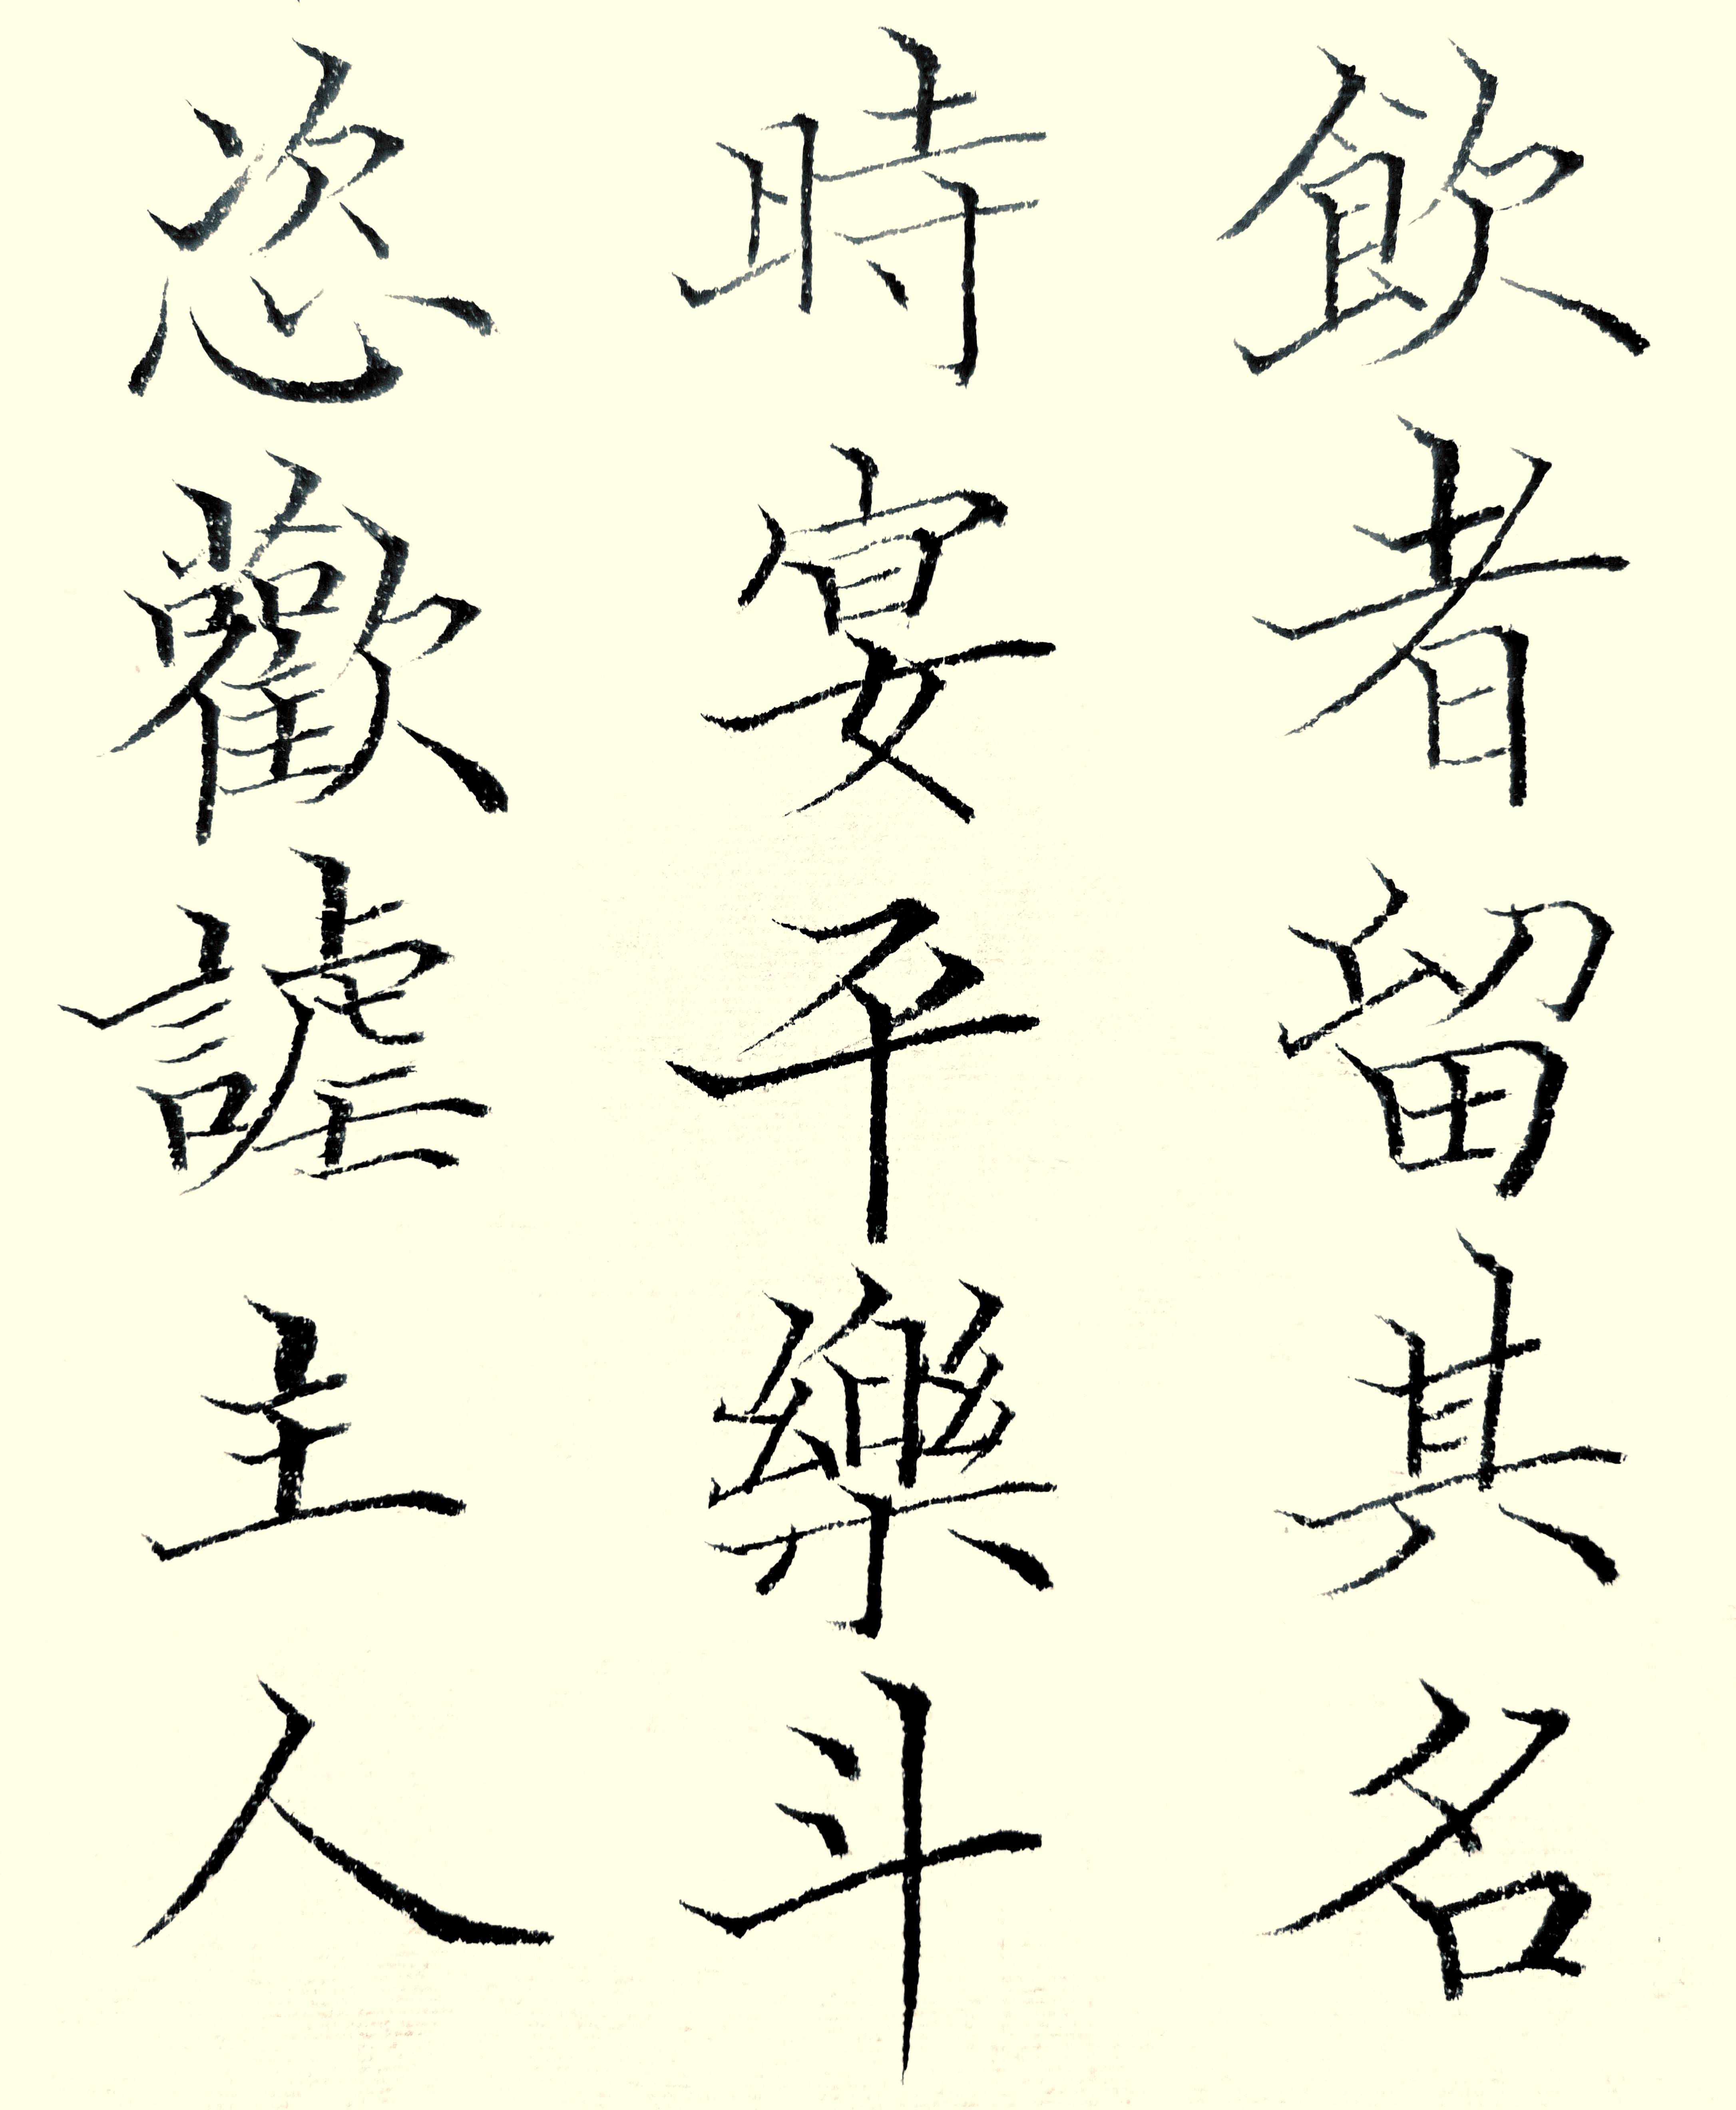 飲者留其名
時宴平樂斗
恣歡謔主人